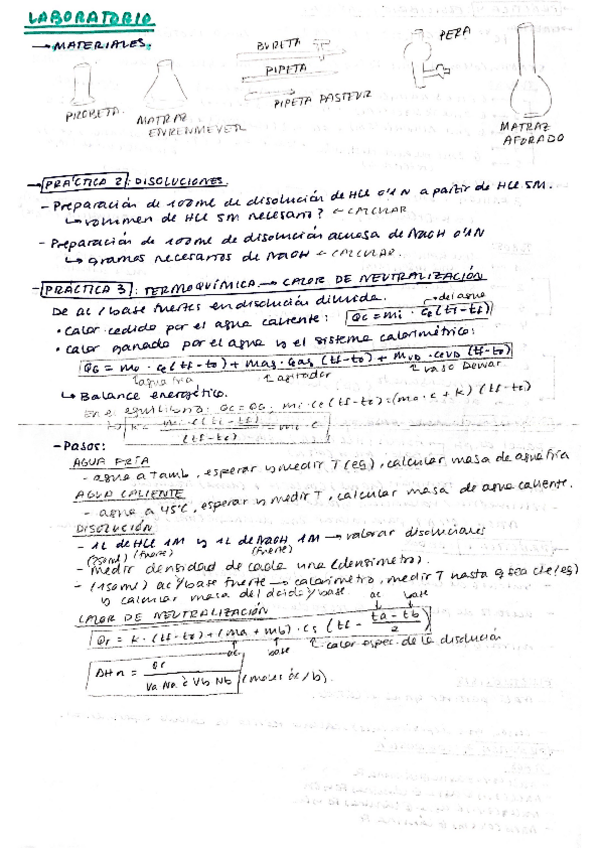 LABORATORIO
→ MATERIALES.
BURETA
PERA
PIPETA
PIPETA PASTEUR
PROBETA
MATRAZ
ENRENMEYER
MATRAZ
AFORADO
→ PRÁCTICA 2: DISOLUCIONES.
- Preparación de 100ml de disolución de HCl 0'1 N a partir de HCl 5M.
↳ volumen de HCl 5M necesario? ← CALCULAR
- Preparación de 100ml de disolución acuosa de NaOH 0'1N
↳ gramos necesarios de NaOH ← CALCULAR.
- PRÁCTICA 3: TERMOQUÍMICA → CALOR DE NEUTRALIZACIÓN
De ac/base fuertes en disolución diluida.
→ del agua
• Calor cedido por el agua caliente: Qc = mi · ce (ti - tf)
• Calor ganado por el agua y el sistema calorimétrico:
QG = mo · ce (tf - to) + mag · cag (tf - to) + mVD · ceVD (tf - to)
agua fría agitador vaso Dewar
↳ Balance energético.
En el equilibrio: QC = QG; mi · ce (ti - tf) = (mo · c + k) (tf - to)
- Pasos:
AGUA FRÍA
- agua a tamb, esperar y medir T (eq), calcular masa de agua fría
AGUA CALIENTE
- agua a 45ºC, esperar y medir T, calcular masa de agua caliente.
DISOLUCIÓN
- 1L de HCl 1M y 1L de NaOH 1M → valorar disoluciones
(250ml) (fuerte) (fuerte)
- Medir densidad de cada una (densímetro).
- (150ml) ac/base fuerte → calorímetro, medir T hasta q sea cte (eq)
y calcular masa del ácido/base
CALOR DE NEUTRALIZACIÓN
ac base
Qr = k · (tf - to) + (ma + mb) · cs (tf - ta - tb / 2)
ac base calor espec. de la disolución
ΔHn = Qr / Va Na ó Vb Nb (moles ác/b).